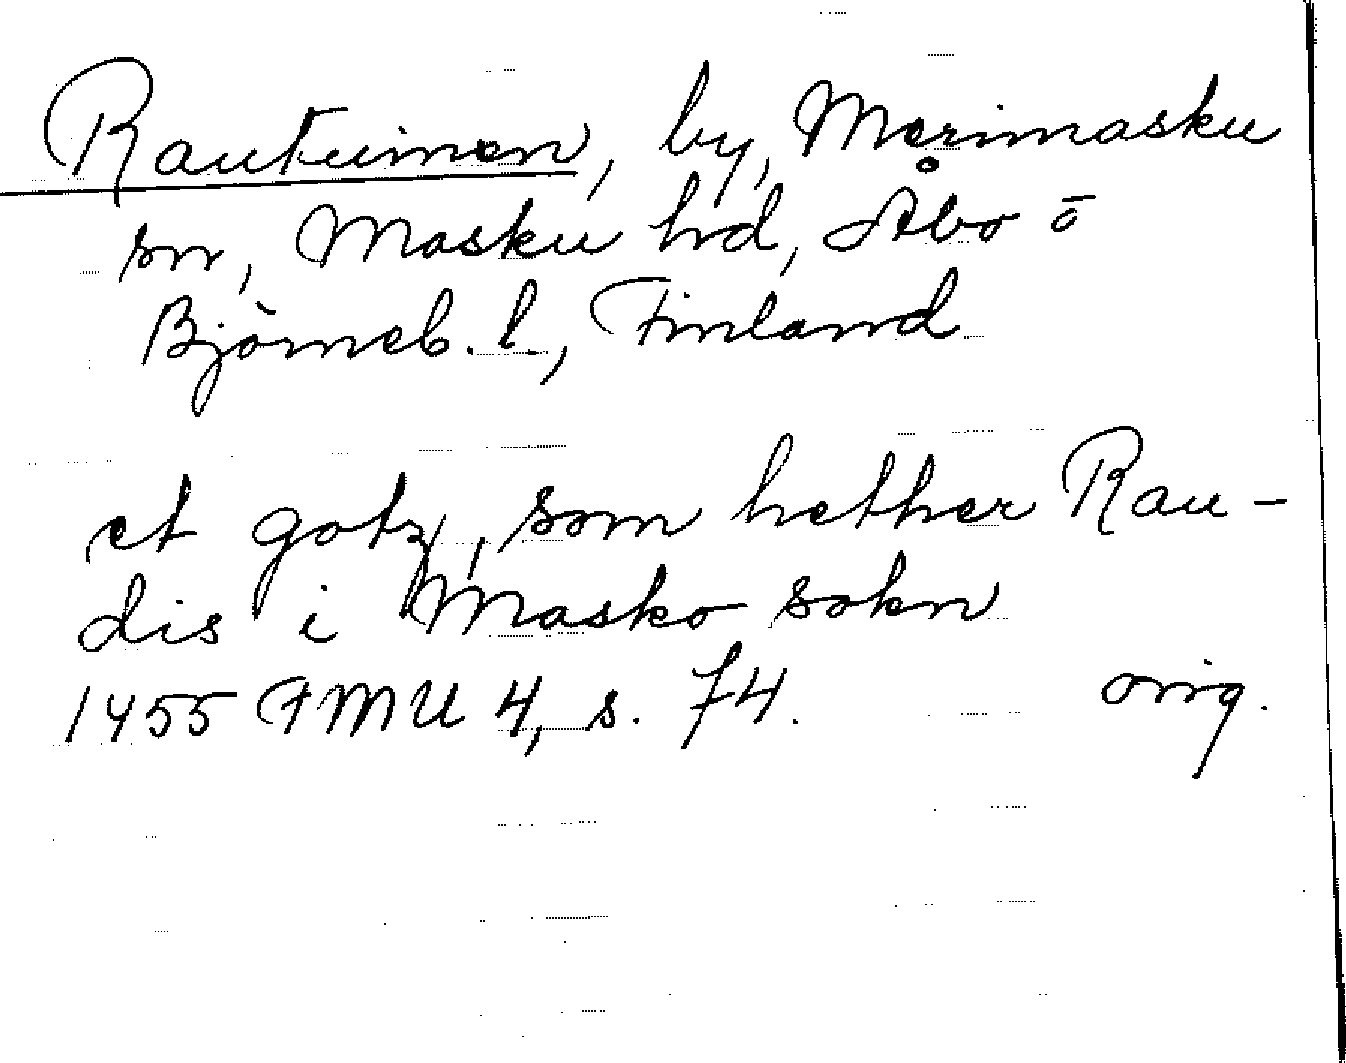 Rautuinen, by, Merimasku
sn, Masku hd, Åbo o
Björneb. l., Finland
et gotz, som hether Rau-
dis i Masko sokn
1455 FMU 4, s. 74. orig.